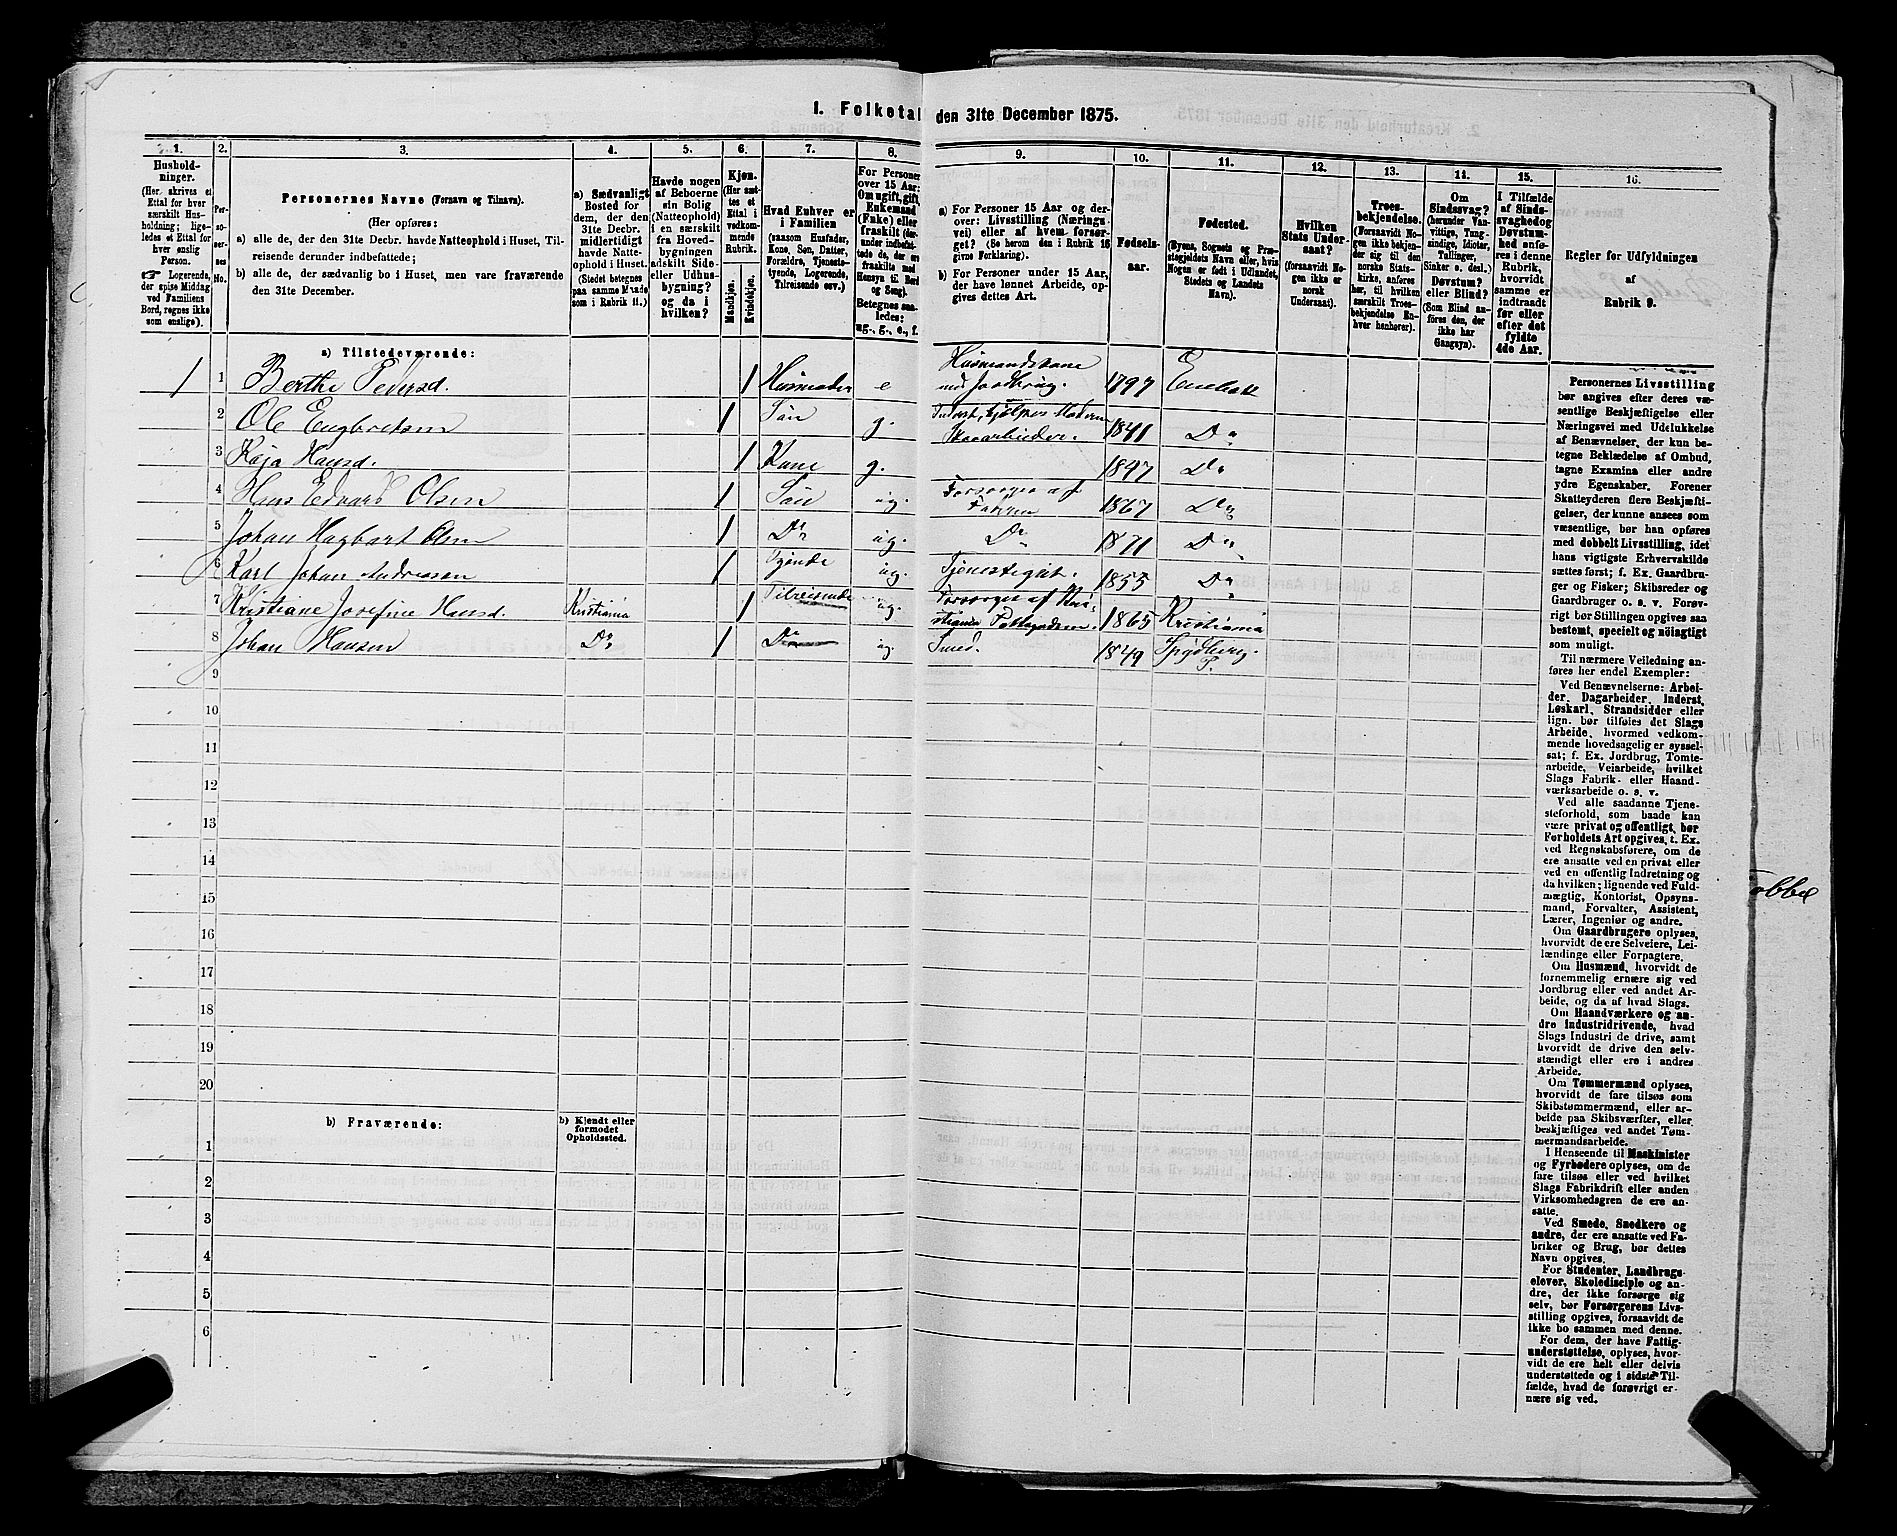 1. Folketal den 31te December 1875.
1. 2. 3. 4. 5. 6. 7. 8. 9. 10. 11. 12. 13. 14. 15. 16.
Hushold-
ninger.
(Her skrives et
Ettal for hver
særskilt Hus-
holdning; lige-
ledes et Ettal for
hver enslig
Person.
☞ Logerende,
der spise Middag
ved Familiens
Bord, regnes ikke
som enslige).
Per-
so-
ner-
nes
No.
Personernes Navne (Fornavn og Tilnavn).
(Her opføres:
a) alle de, der den 31te Decbr. havde Natteophold i Huset, Til-
reisende derunder indbefattede;
b) alle de, der sædvanlig bo i Huset, men vare fraværende
den 31te December.
a) Sædvanligt
Bosted for
dem, der den
31te Decbr.
midlertidigt
havde Natte-
ophold i Huset.
(Stedet betegnes
paa samme Maade
som i Rubrik 11.)
Havde nogen
af Beboerne
sin Bolig
(Natteophold)
i en særskilt
fra Hoved-
bygningen
adskilt Side-
eller Udhus-
bygning?
og da i
hvilken?
Kjøn.
(Her sæt-
tes et
Ettal i
vedkom-
mende
Rubrik.
Mandkjøn.
Kvindekjøn.
Hvad Enhver er
i Familien
(saasom Husfader,
Kone, Søn, Datter,
Forældre, Tjeneste-
tyende, Logerende,
Tilreisende osv.)
For Personer
over 15 Aar:
Om ugift, gift,
Enkemand
(Enke) eller
fraskilt (der-
under indbefat-
tede de, der ere
fraskilte med
Hensyn til Bord
og Seng).
Betegnes saa-
ledes:
ug., g., e., f.
a) For Personer 15 Aar og der-
over: Livsstilling (Nærings-
vei) eller af hvem forsør-
get? (Se herom den i Rubrik 16
givne Forklaring).
b) For Personer under 15 Aar,
der have lønnet Arbeide, op-
gives dettes Art.
Fødsels-
aar.
Fødested.
(Byens, Sognets og Præ-
stegjeldets Navn eller, hvis
Nogen er født i Udlandet,
Stedets og Landets
Navn).
Hvilken
Stats Under-
saat?
(forsaavidt No-
gen ikke er
norsk
Undersaat).
Troes-
bekjendelse.
(Forsaavidt No-
gen ikke bekjen-
der sig til den
norske Stats-
kirke, anføres
her, til hvilken
særskilt Troes-
bekjendelse En-
hver henhører).
Om
Sindssvag?
(herunder Van-
vittige, Tung-
sindige, Idioter,
Tullinger,
Sinker o. desl.)
Døvstum?
eller Blind?
(Som Blind an-
føres den, der
ikke har
Gangsyn).
I Tilfælde
af Sinds-
svaghed og
Døvstum-
hed anfø-
res i denne
Rubrik,
hvorvidt
samme er
indtraadt
før eller
efter det
fyldte
4de Aar.
Regler for Udfyldningen
af
Rubrik 9.
a) Tilstedeværende:
1 1 Berthe Pedersd. 1 Husmoder e Husmandskone
med Jordbrug. 1797 Enebak
2 Ole Engbretsen 1 Søn g. Inderst, hjelper Moderen
Skovarbeider. 1841 Do
3 Kaja Hansd. 1 Kone g. 1847 Do
4 Hans Edvard Olsen 1 Søn ug. Forsørges af
Faderen 1867 Do
5 Johan Hagbart Olsen 1 Do ug. Do 1871 Do
6 Karl Johan Andreasen 1 Tyende ug. Tjenestegut. 1855 Do
7 Kristiane Josefine Hansd. Kristiania 1 Tilreisende ug. Forsørges af Kri-
stiania 1865 Kristiania
8 Johan Hansen Do 1 Do ug. Smed. 1849 Spydberg.
P.
9
10
11
12
13
14
15
16
17
18
19
20
b) Fraværende:
b) Kjendt eller
formodet
Opholdssted.
1
2
3
4
5
6
Personernes Livsstilling
bør angives efter deres væ-
sentlige Beskjæftigelse eller
Næringsvei med Udelukkelse
af Benævnelser, der kun be-
tegne Beklædelse af Ombud,
tagne Examina eller andre
ydre Egenskaber. Forener
Skatteyderen flere Beskjæfti-
gelser, der kunne ansees som
væsentlige, bør han opføres
med dobbelt Livsstilling, idet
hans vigtigste Erhvervskilde
sættes først; f. Ex. Gaardbru-
ger og Fisker; Skibsreder og
Gaardbruger o. s. v. Forøv-
rigt bør Stillingen opgives saa
bestemt, specielt og nöiagtigt
som muligt.
Til nærmere Veiledning an-
føres her endel Exempler:
Ved Benævnelserne: Arbei-
der, Dagarbeider, Inderst,
Løskarl, Strandsidder eller
lign. bør tilføies det Slags
Arbeide, hvormed vedkom-
mende hovedsagelig er syssel-
sat; f. Ex. Jordbrug, Tomte-
arbeide, Veiarbeide, hvilket
Slags Fabrik- eller Haand-
værksarbeide o. s. v.
Ved alle saadanne Tjene-
steforhold, som baade kan
være privat og offentligt, bør
Forholdets Art opgives, t. Ex.
ved Regnskabsførere, om de
ere ansatte ved en privat eller
ved en offentlig Indretning og
da hvilken; lignende ved Fuld-
mægtig, Kontorist, Opsyns-
mand, Forvalter, Assistent,
Lærer, Ingeniør og andre.
Om Gaardbrugere oplyses,
hvorvidt de ere Selveiere, Lei-
lændinge eller Forpagtere.
Om Husmænd, hvorvidt de
fornemmelig ernære sig ved
Jordbrug eller ved andet Ar-
beide, og da af hvad Slags.
Om Haandværkere og an-
dre industridrivende, hvad
Slags Industri de drive, samt
hvorvidt de drive den selv-
stændigt eller ere i andres
Arbeide.
Om Tømmermænd oplyses,
hvorvidt de fare tilsøs som
Skibstømmermænd, eller ar-
beide paa Skibsværfter, eller
beskjæftiges ved andet Tøm-
mermandsarbeide.
I Henseende til Maskinister
og Fyrbødere oplyses, om de
fare tilsøs eller ved hvilket
Slags Fabrikdrift eller anden
Virksomhedsgren de ere an-
satte.
Ved Smede, Snedkere og
andre, der ere ansatte ved Fa-
briker og Brug, bør dettes
Navn opgives.
For Studenter, Landbrugs-
elever, Skoledisciple og an-
dre, der ikke forsørge sig
selv, bør Forsørgerens Livs-
stilling opgives, forsaavidt de
ikke bo sammen med denne.
For dem, der have Fattig-
understøttelse, oplyses, hvor-
vidt de ere helt eller delvis
understøttede og i sidste Til-
fælde, hvad de forøvrigt er-
nære sig ved.